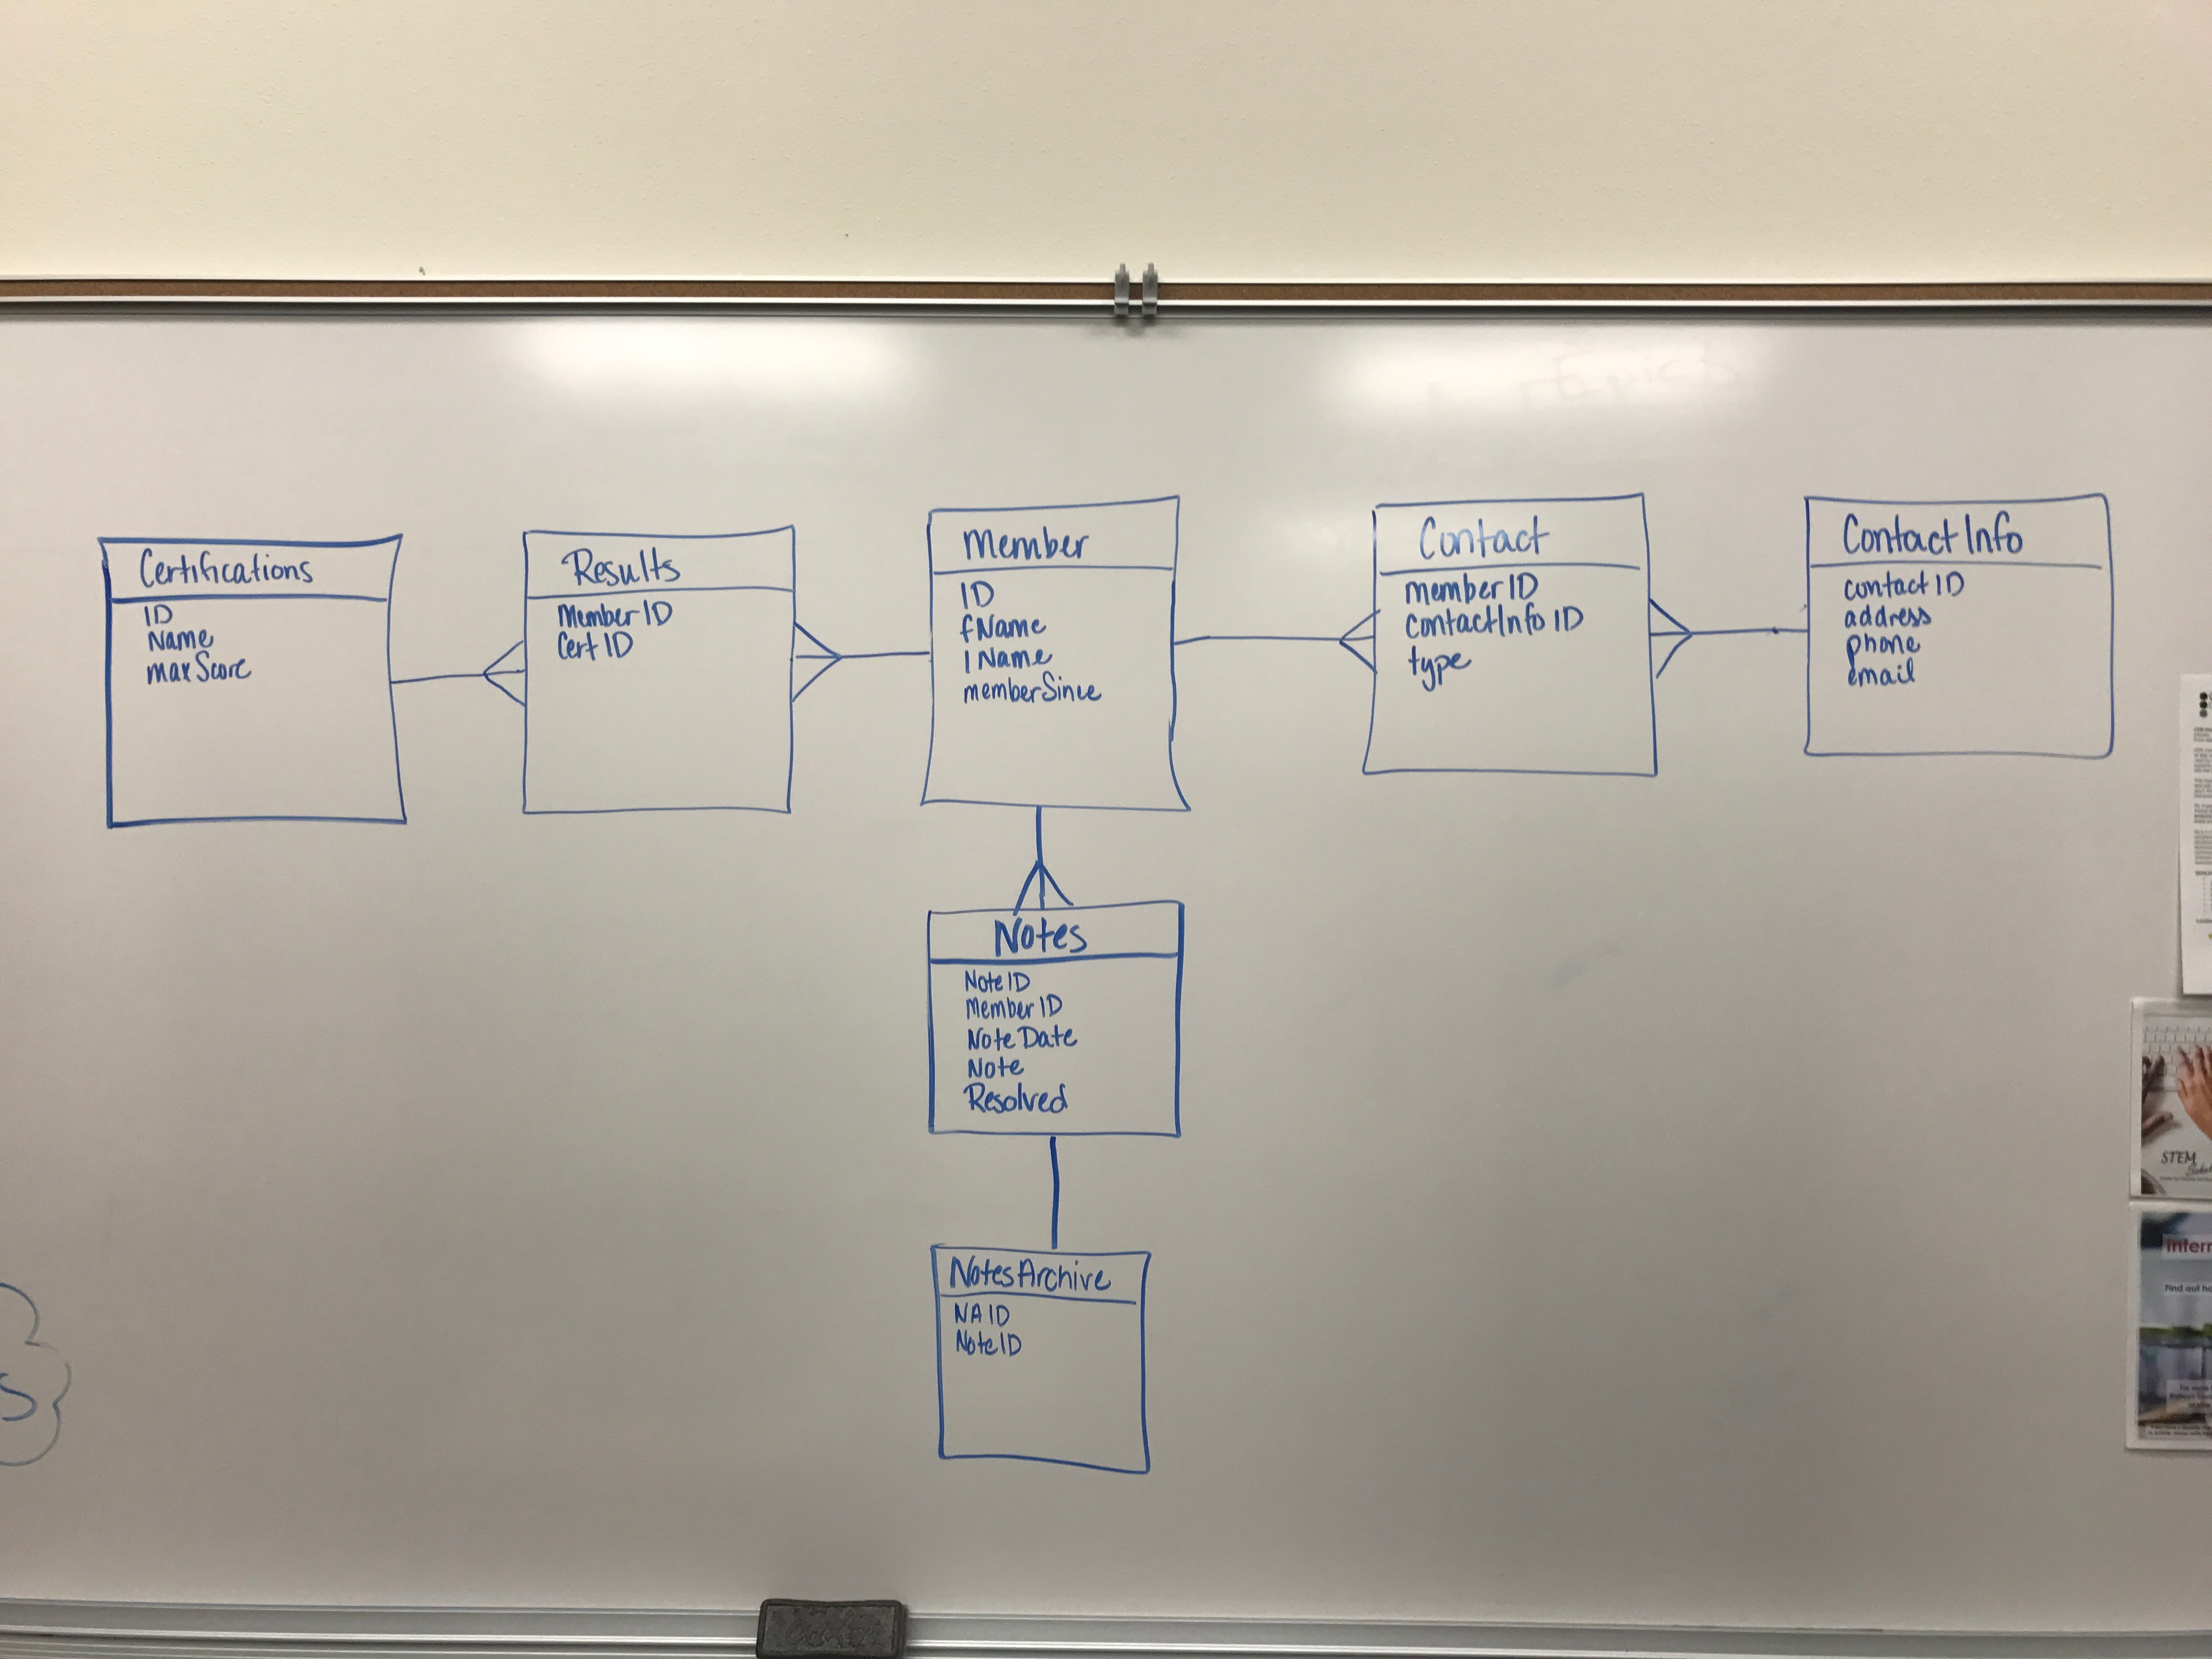 Certifications
ID
Name
maxScore
Results
Member ID
Cert ID
Member
ID
fName
lName
memberSince
Contact
member ID
contactInfo ID
type
Contact Info
contact ID
address
phone
email
Notes
Note ID
Member ID
Note Date
Note
Resolved
NotesArchive
NA ID
Note ID
S
STEM
intern
Find out ho